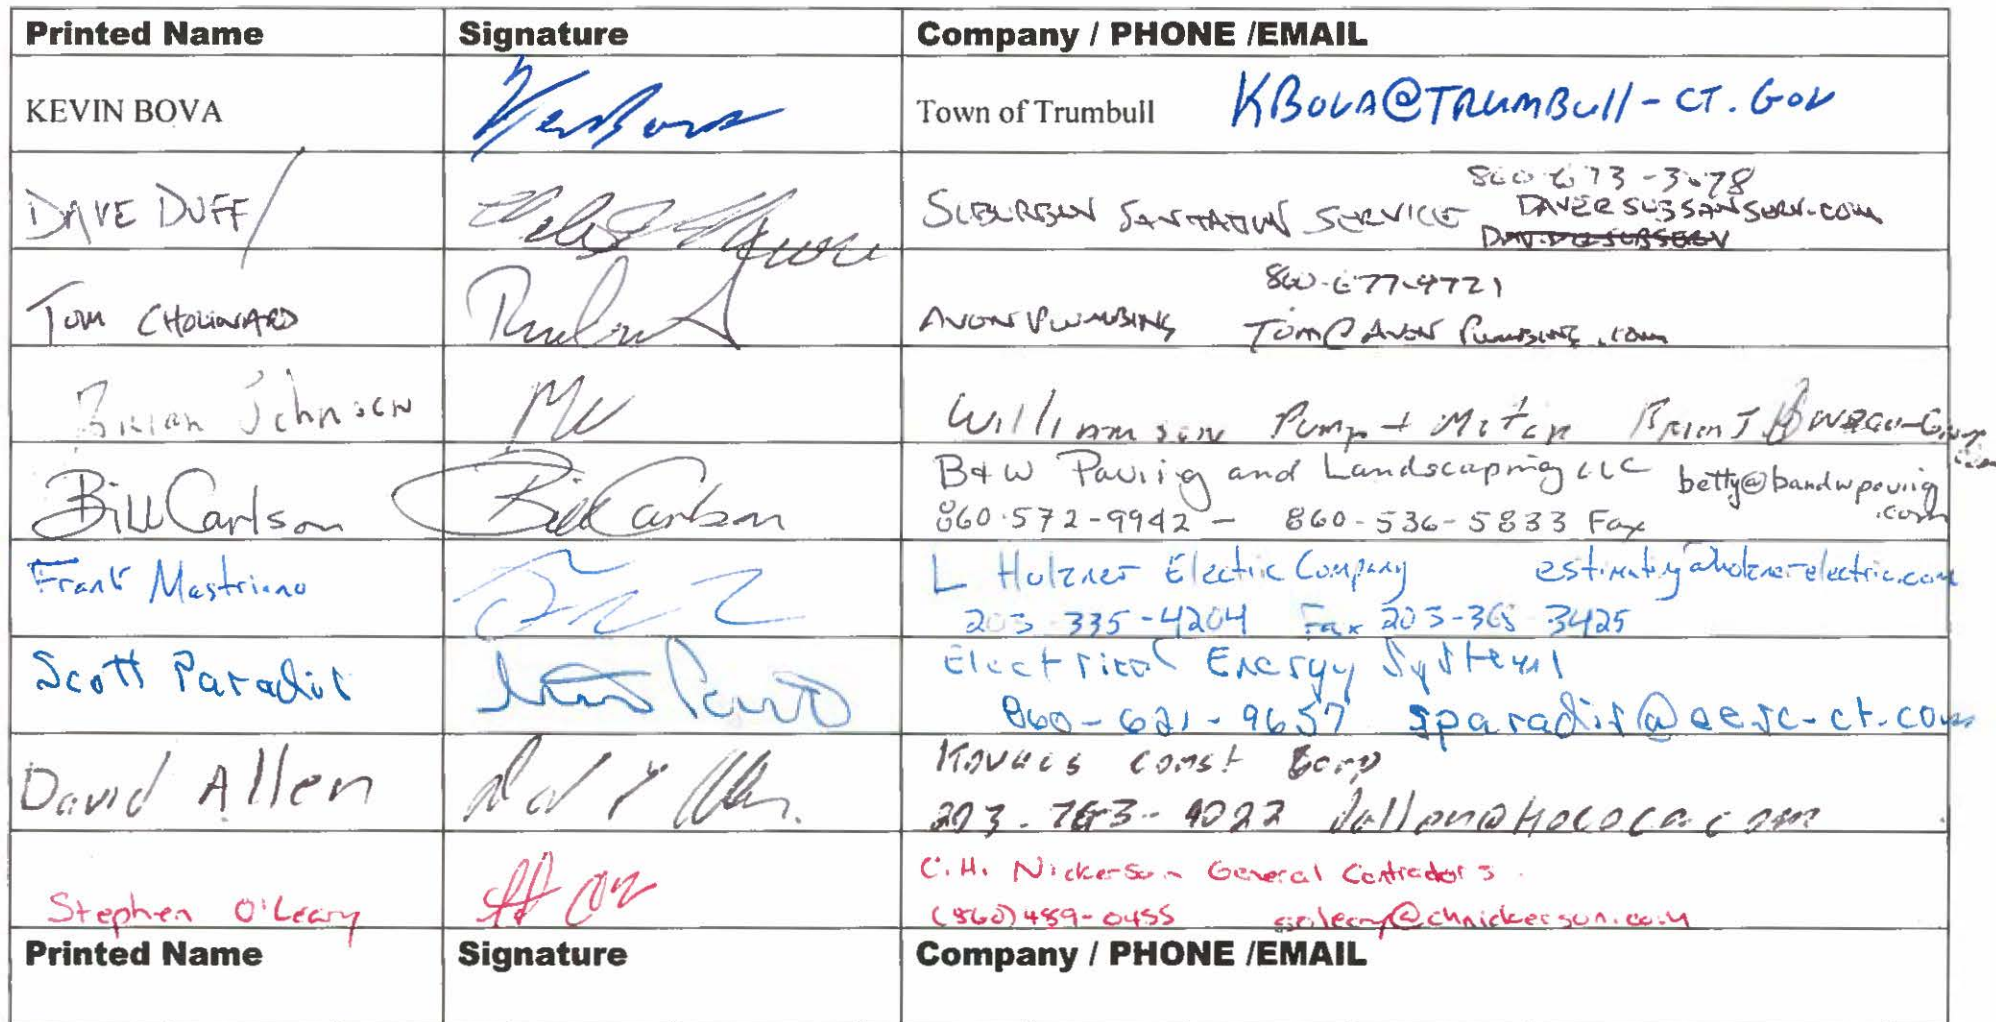 Printed Name Signature Company / PHONE /EMAIL
KEVIN BOVA Town of Trumbull KBOVA@TRUMBull-CT.GOV
DAVE DUFF
SUBURBAN SANITATION SERVICE
TOM CHOUINARD
860-677-4721
AVON PLUMBING TOM@AVON PLUMBING.com
Brian Johnson
Williamson Pump + Motor
Bill Carlson Bill Carlson
B+W Paving and Landscaping LLC betty@bandwpaving.com
860-572-9942 - 860-536-5833 Fax
Frank Mastriano
L Holzner Electric Company estimating@holznerelectric.com
203-335-4204 Fax 203-365-3425
Scott Paradis
Electrical Energy Systems
860-621-9657 sparadis@eesc-ct.com
David Allen
Kovacs Const Corp
Stephen O'Leary
C.H. Nickerson General Contractors
(860) 489-0455 soleary@chnickerson.com
Printed Name Signature Company / PHONE /EMAIL